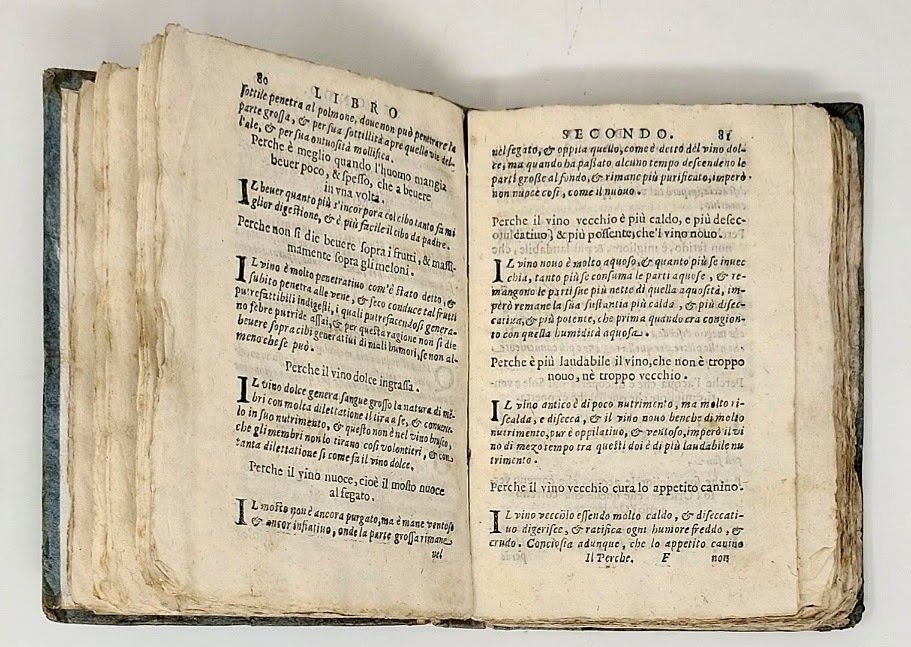 80
LIBRO
sottile penetra al polmone, doue non può penetrare la
parte grossa, & per sua sottillità apre quelle vie del-
l'ale, & per sua ontuosità mollifica.
Perche è meglio quando l'huomo mangia
beuer poco, & spesso, che a beuere
in vna volta.
IL beuer quanto più s'incorpora col cibo tanto fa mi
glior digestione, & è più facile il cibo da padire.
Perche non si die beuere sopra i frutti, & massi-
mamente sopra gli meloni.
IL vino è molto penetratiuo com'è stato detto, &
subito penetra alle vene, & seco conduce tal frutti
putrefattibili indigesti, i quali putrefacendosi genera-
no febre putride assai, & per questa ragione non si die
beuere sopra cibi generatiui di mali humori, se non al-
meno che se può.
Perche il vino dolce ingrassa.
IL vino dolce genera sangue grosso la natura di mē-
bri con molta dilettatione il tira a se, & conuerte-
lo in suo nutrimento, & questo non è nel vino brusco,
che gli membri non lo tirano cosi volontieri, & con
tanta dilettatione si come fa il vino dolce.
Perche il vino nuoce, cioè il mosto nuoce
al fegato.
IL mosto non è ancora purgato, ma è mane ventoso
& ancor infiatiuo, onde la parte grossa rimane
nel
SECONDO. 81
nel fegato, & oppila quello, come è detto del vino dol-
ce, ma quando ha passato alcuno tempo descendeno le
parti grosse al fondo, & rimane più purificato, imperò
non nuoce cosi, come il nuouo.
Perche il vino vecchio è più caldo, e più desec-
catiuo, & più possente, che'l vino nouo.
IL vino nouo è molto aquoso, & quanto più se inuec
chia, tanto più se consuma le parti aquose, & re-
mangono le parti sue più nette di quella aquosità, im-
però remane la sua sustantia più calda, & più disec-
catiua, & più potente, che prima quando era congion-
to con quella humidità aquosa.
Perche è più laudabile il vino, che non è troppo
nouo, nè troppo vecchio.
IL vino antico è di poco nutrimento, ma molto ri-
scalda, e disecca, & il vino nouo benche di molto
nutrimento, pur è oppilatiuo, & ventoso, imperò il vi
no di mezo tempo tra questi doi è di più laudabile nu
trimento.
Perche il vino vecchio cura lo appetito canino.
IL vino vecchio essendo molto caldo, & diseccati-
uo digerisce, & ratifica ogni humore freddo, &
crudo. Conciosia adunque, che lo appetito canino
Il Perche. F non